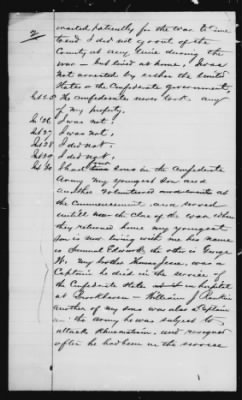 2
waited patiently for the war to
end I did not go out of the
County at any time during the
war – but lived at home, I was
not arrested by either the United
States or the Confederate government
Int 25 The Confederate never took any
of my property.
Int 26 I was not,
Int 27 I was not,
Int 28 I did not
Int 29 I did not,
Int 30 I had four sons in the Confederate
Army my youngest son and
another volunteered
at the Commencement and served
until near the close of the war when
they returned home my youngest
son is now living with me his name
is Samuel Edward the other is George
W. my brother Thomas Jesse was a
Captain he died in the service of
the Confederate States at in hospital
at Brookhaven – William J Rankin
another of my sons was also a Captain
in the army he was subject to
attacks Rheumatism, and resigned
after he had been in the service